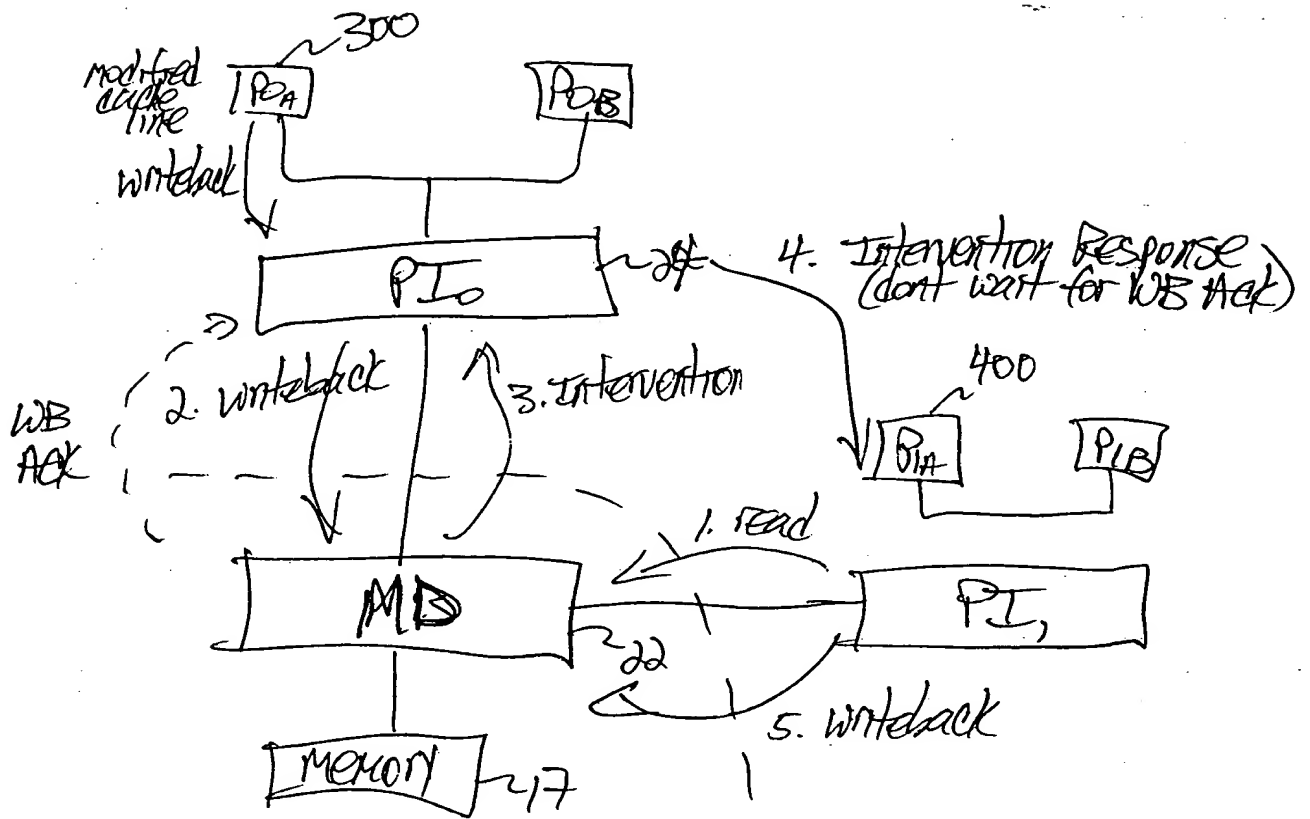 300
modified
cache
line
P0A
P0B
writeback
PI0
24
4. Intervention Response
(dont wait for WB Ack)
2. writeback
3. Intervention
400
WB
ACK
P1A
P1B
1. read
MD
PI1
22
5. writeback
Memory
17